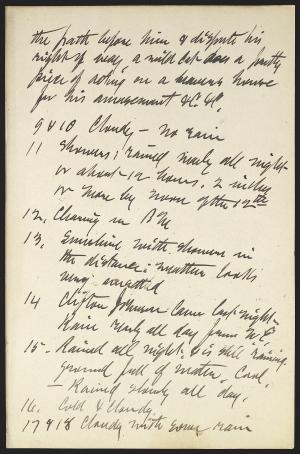 the path before him & disputes his
right of way, a wild cat does a pretty
piece of acting on a house
for his amusement &c. &c.
9 & 10 Cloudy - no rain
11 Showers; rained nearly all night
or about 12 hours. 2 inches
or more by noon of the 12th
12. Clearing in P.M.
13. Sunshine with showers in
the distance; weather looks
very unsettled
14 Clifton Johnson came last night.
Rain nearly all day from N.E.
15 - Rained all night & is still raining.
Ground full of water. Cool.
- Rained slowly all day.
16. Cold & Cloudy.
17 & 18 Cloudy with some rain